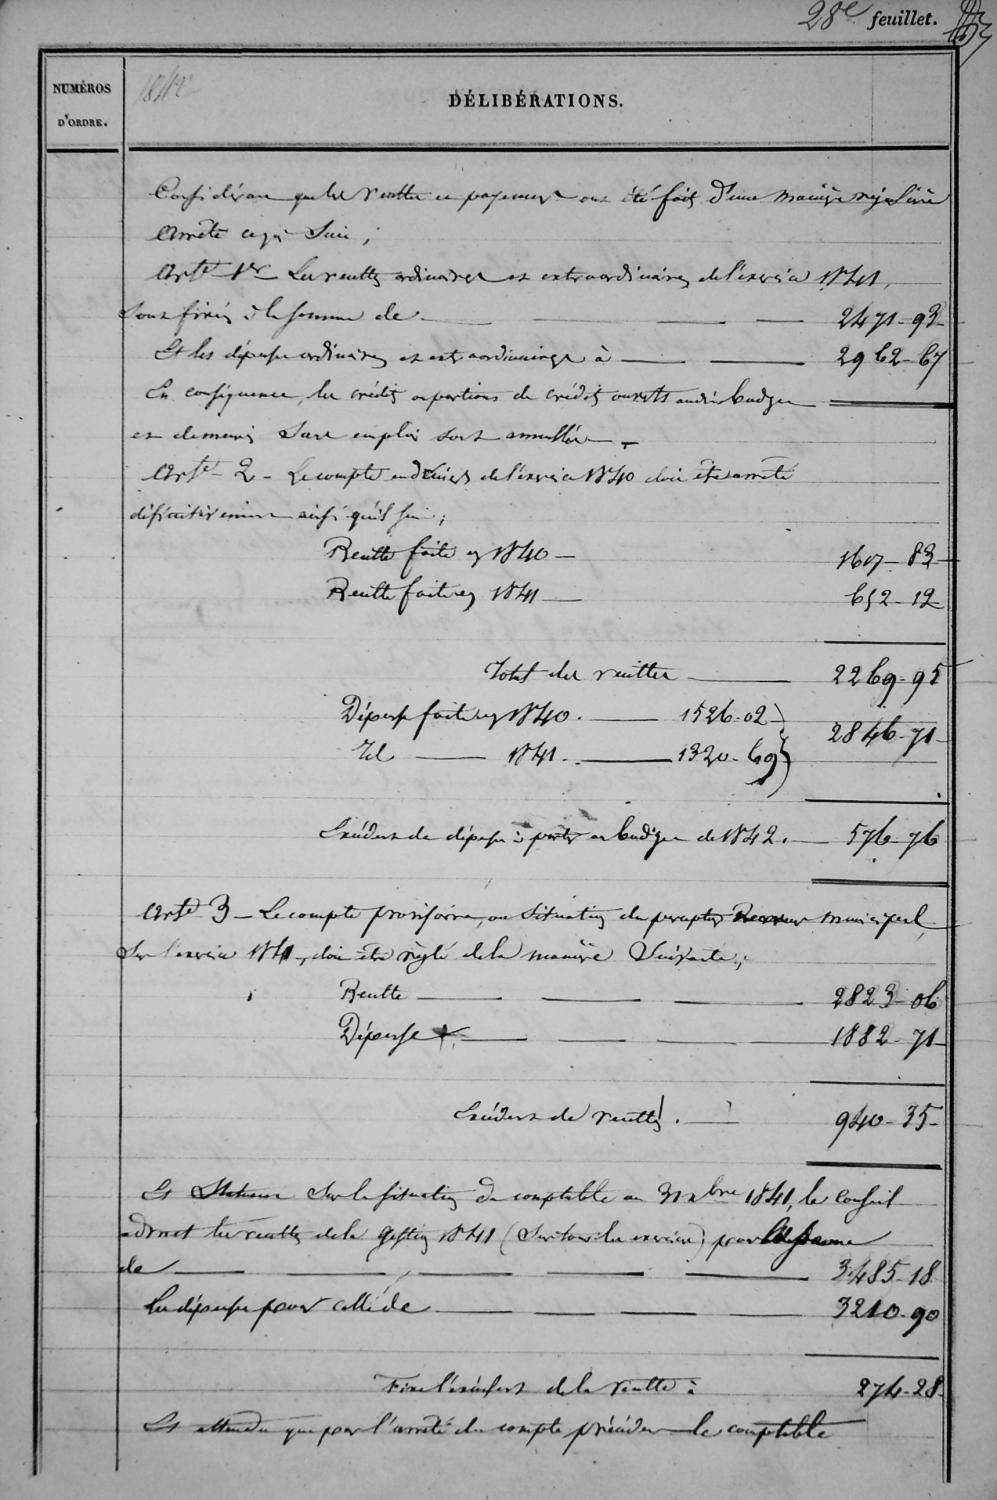 28e feuillet.
NUMÉROS
D'ORDRE.
1842
DÉLIBÉRATIONS.
Considérant que les recettes et payement ont été fait d'une manière régulière
Arrête ce qui suit,
Arte 1er Les recettes ordinaires et extraordinaires de l'exercice 1841,
sont fixés à la somme de 2471-93
Et les dépenses ordinaires et extraordinaires à 2962-67
En conséquence, les crédits ou portions de crédits ouverts audit budget
et demeurés sans emploi sont annullés
Arte 2 - Le compte en deniers de l'exercice 1840 doit être arrêté
définitivement ainsi qu'il suit;
Recette faite en 1840 - 1617-83
Recette faite en 1841 652-12
Total des recettes 2269-95
Dépense faite en 1840. 1526-02
2846-71
Id 1841. 1320-69
Excédent de dépense à porter au budget de 1842. 576-76
Arte 3 - Le compte provisoire, ou situation du percepteur Receveur municipal,
sur l'exercice 1841, doit être réglé de la manière suivante;
Recette 2823-06
Dépense 1882-71
Excédent de recettes. 940-35
Et statuant sur la situation du comptable au 31 xbre 1841, le Conseil
admet les recettes de la gestion 1841 (sur tous les exercices) pour la somme
de 3485-18
les dépenses pour celle de 3210-90
Fixe l'excédent de la recette à 274-28
Et attendu que par l'arrêté du compte précédent le comptable